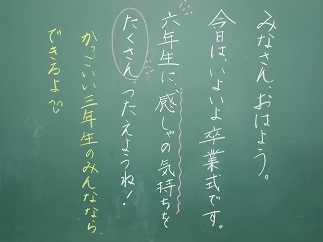 みなさん、おはよう。
今日は、いよいよ卒業式です。
六年生に、感しゃの気持ちを
たくさんつたえようね！
かっこいい三年生のみんななら、
できるよ